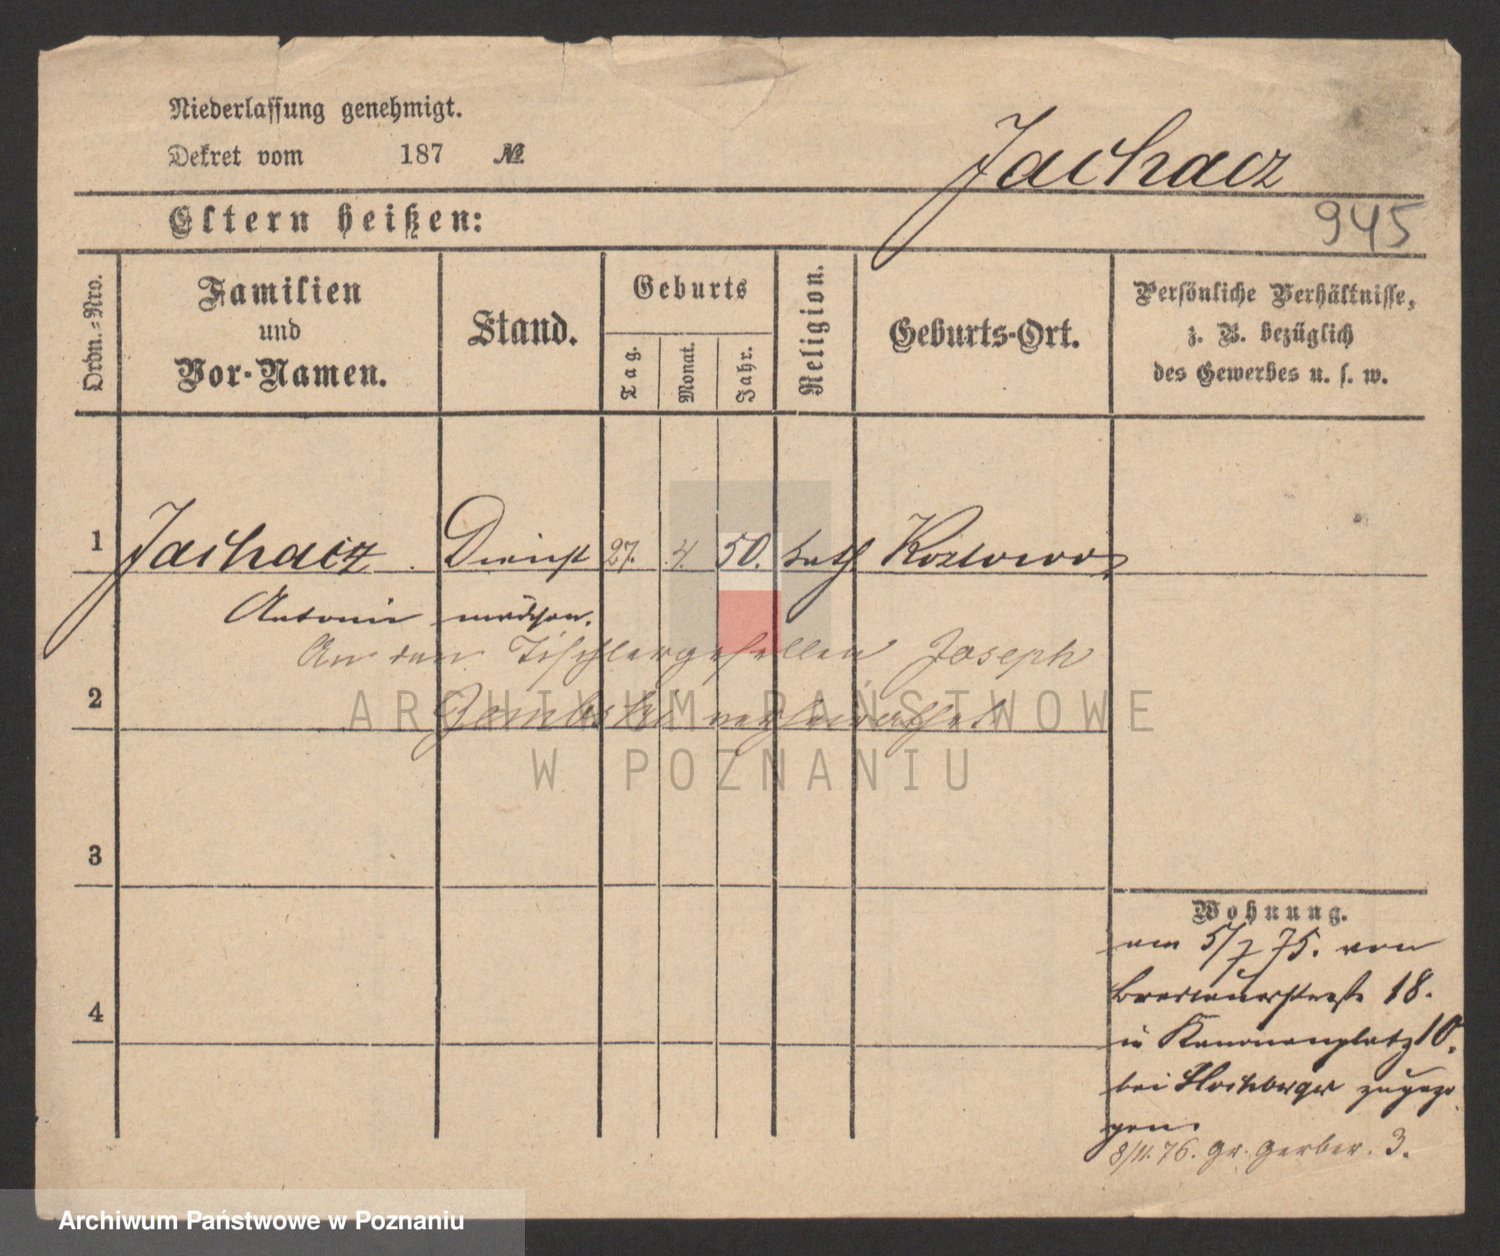 Niederlassung genehmigt.
Dekret vom 187 №
Jachacz
Eltern heißen:
945
Ordn.-Nro.
Familien
und
Vor-Namen.
Stand.
Geburts
Tag.
Monat.
Jahr.
Religion.
Geburts-Ort.
Persönliche Verhältnisse,
z. B. bezüglich
des Gewerbes u. s. w.
1 Jachacz Dienst 27. 4. 50. kath Kozlowo
Antonie mädchen.
An den Tischlergesellen Joseph
2 verheirathet
ARCHIWUM PAŃSTWOWE
W POZNANIU
3
Wohnung.
am 5/7 75. von
Breslauerstraße 18.
4
n Kanonenplatz 10.
bei Hochberger zugezo
gen.
8/11. 76. Gr. Gerber. 3.
Archiwum Państwowe w Poznaniu